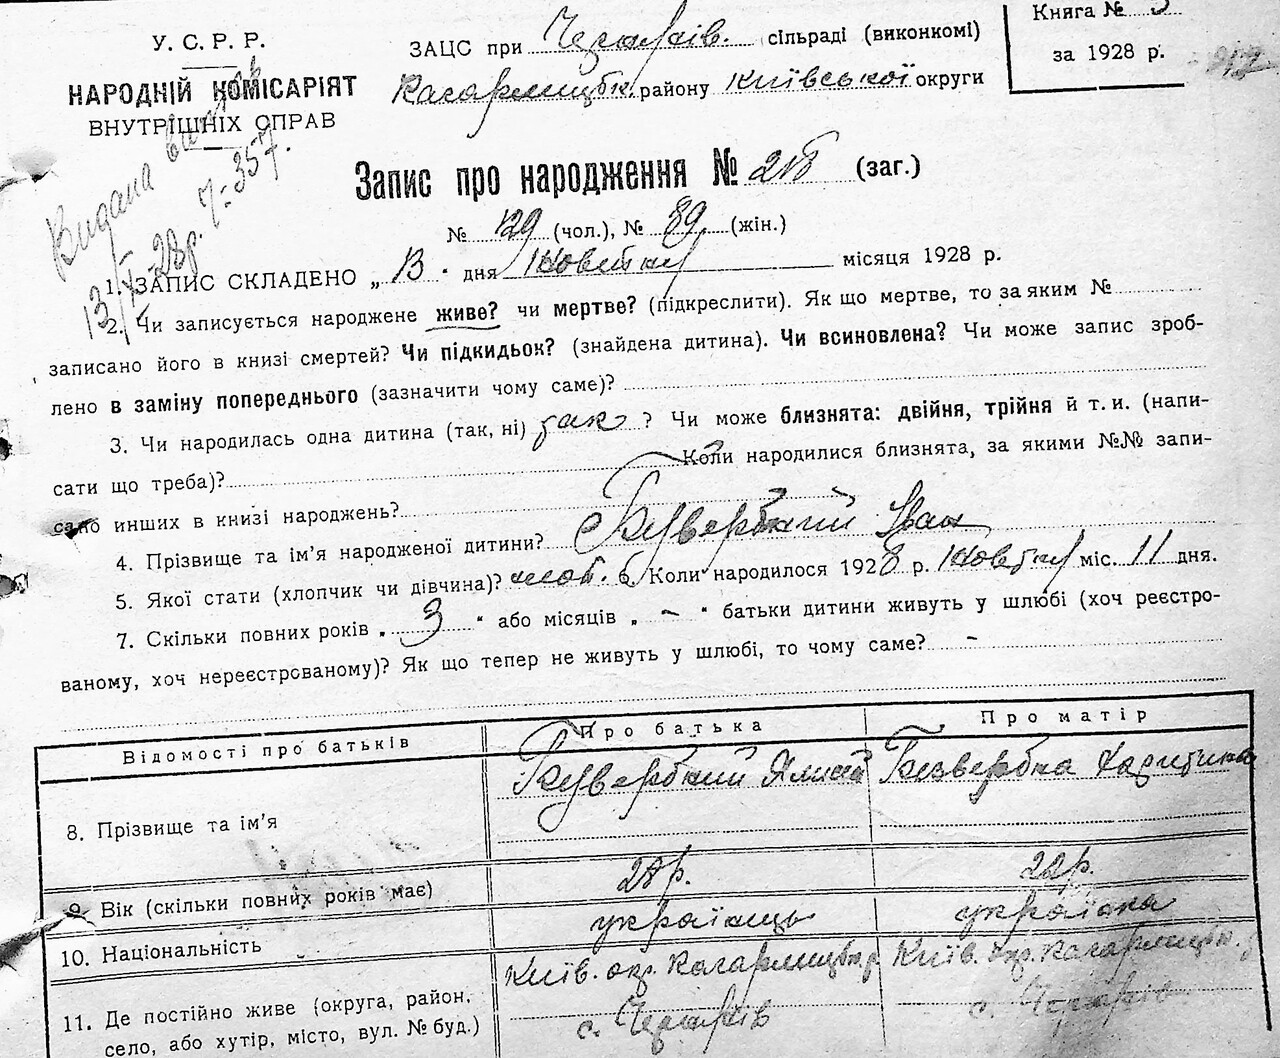 У. С. Р. Р.
НАРОДНІЙ КОМІСАРІЯТ
ВНУТРІШНІХ СПРАВ
ЗАЦС при сільраді (виконкомі)
Кагарлицьк. району Київської округи
Книга №
за 1928 р.
Видана
13/X-28р. 7-357.
Запис про народження № 218 (заг.)
№ 129 (чол.), № 89 (жін.)
1. ЗАПИС СКЛАДЕНО „ 13 " дня Жовтня місяця 1928 р.
2. Чи записується народжене живе? чи мертве? (підкреслити). Як що мертве, то за яким №
записано його в книзі смертей? Чи підкидьок? (знайдена дитина). Чи всиновлена? Чи може запис зроб-
лено в заміну попереднього (зазначити чому саме)?
3. Чи народилась одна дитина (так, ні) так ? Чи може близнята: двійня, трійня й т. и. (напи-
сати що треба)? Коли народилися близнята, за якими №№ запи-
сано инших в книзі народжень?
4. Прізвище та ім'я народженої дитини? Безверхий Іван
5. Якої стати (хлопчик чи дівчина)? хлоп. 6. Коли народилося 1928 р. Жовтня міс. 11 дня.
7. Скільки повних років „ 3 " або місяців „ – " батьки дитини живуть у шлюбі (хоч реєстро-
ваному, хоч нереєстрованому)? Як що тепер не живуть у шлюбі, то чому саме? –
Відомості про батьків Про батька Про матір
8. Прізвище та ім'я Безверхий Безверха Харитина
9. Вік (скільки повних років має) 28 р. 22 р.
10. Національність українець українка
11. Де постійно живе (округа, район, Київ. окр. Кагарлицьк. р Київ. окр. Кагарлицьк. р
село, або хутір, місто, вул. № буд.) с. с.